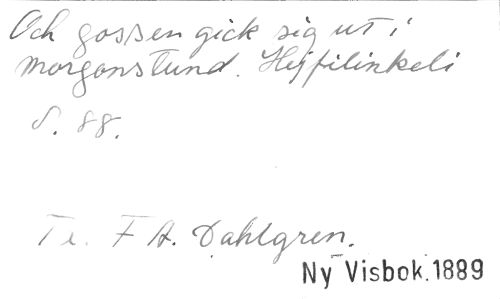 Och gossen gick sig ut i
morgonstund. Hejfilinkeli
S. 88.
Tr. F A. Dahlgren.
Ny Visbok. 1889